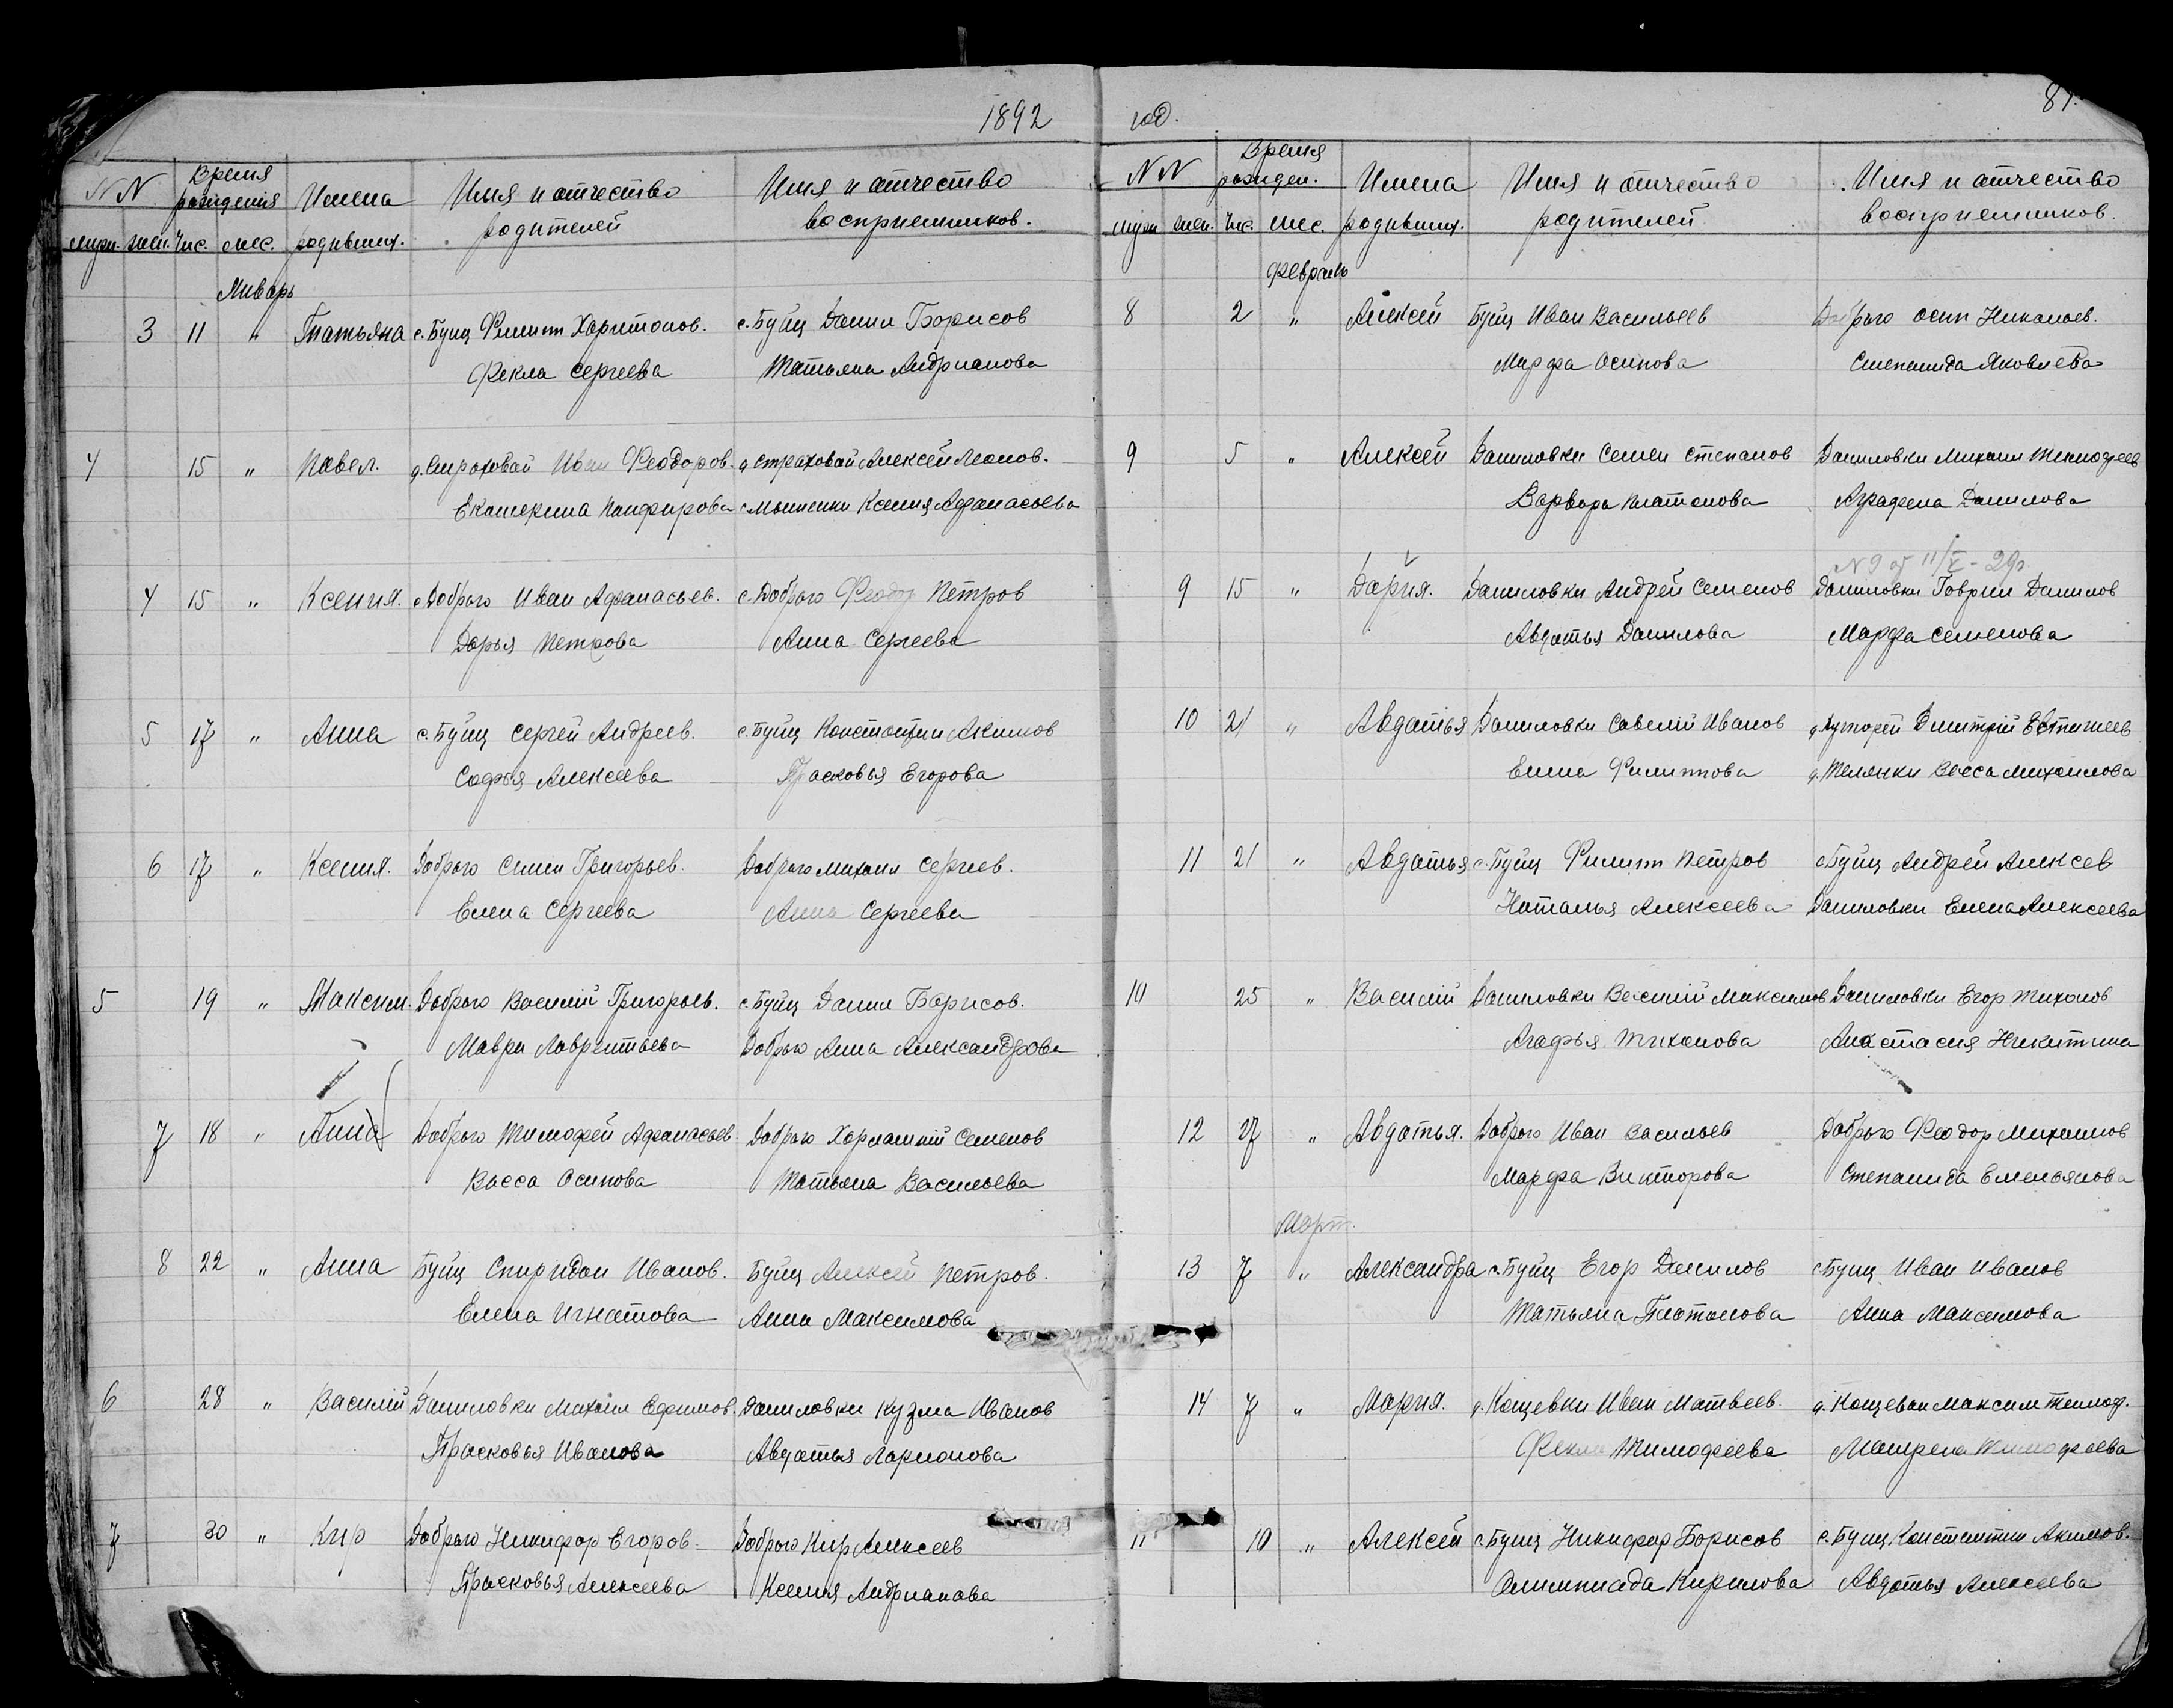 1892
NN Время рождения Имена родивших. Имя и отчество родителей Имя и отчество восприемников.
муж. жен. Чис. мес.
Январь
3 11 " Татьяна с. Буйц Филипп Харитонов. с. Буйц Данил Борисов
Фекла Сергеева Татьяна Андрианова
4 15 " Павел. д. Страховай Иван Феодоров. д. Страховай Алексей Леонов.
Екатерина Панфирова Ксения Афанасьева
4 15 " Ксения. с. Доброго Иван Афанасьев. с. Доброго Феодор Петров
Дарья Петрова Анна Сергеева
5 17 " Анна с. Буйц Сергей Андреев. с. Буйц Константин Акимов
Софья Алексеева Прасковья Егорова
6 17 " Ксения. Доброго Симеон Григорьев. Доброго Михаил Сергеев.
Елена Сергеева Анна Сергеева
5 19 " Максим. Доброго Василий Григорьев. с. Буйц Данил Борисов.
Мавра Лаврентьева Доброго Анна Александрова
7 18 " Анна Доброго Тимофей Афанасьев Доброго Харлампий Семенов
Васса Осипова Татьяна Васильева
8 22 " Анна Буйц Спиридон Иванов. Буйц Алексей Петров.
Елена Игнатова Анна Максимова
6 28 " Василий Даниловки Михаил Ефимов. Даниловки Кузма Иванов
Прасковья Иванова Авдотья Ларионова
7 30 " Кир Доброго Никифор Егоров Доброго Кир Алексеев
Прасковья Алексеева Ксения Андрианова
год. 87.
NN Время рожден. Имена родивших. Имя и отчество родителей. Имя и отчество восприемников.
муж жен. Чис. мес.
Февраль
8 2 " Алексей Буйц Иван Васильев Доброго Осип Николаев.
Марфа Осипова Степанида Яковлева
9 5 " Алексей Даниловки Семен Степанов Даниловки Михаил Тимофеев
Варвара Платонова Аграфена Данилова
N 9 от 11/X - 29г.
9 15 " Дария. Даниловки Андрей Семенов Даниловки Гаврил Данилов
Авдотья Данилова Марфа Семенова
10 21 " Авдотья Даниловки Савелий Иванов д. Хуторей Дмитрий Евстигнеев
Елена Филиппова Васса Михаилова
11 21 " Авдотья с. Буйц Филипп Петров с. Буйц Андрей Алексеев
Наталья Алексеева Даниловки Елена Алексеева
10 25 " Василий Даниловки Василий Максимов Даниловки Егор Тихонов
Агафья Тихонова Анастасия Никитина
12 27 " Авдотья. Доброго Иван Васильев Доброго Феодор Михаилов
Марфа Викторова Степанида Емельянова
Март.
13 7 " Александра с. Буйц Егор Данилов с. Буйц Иван Иванов
Татьяна Платонова Анна Максимова
14 7 " Мария. д. Кащевки Иван Матвеев. д. Кащевки Максим Тимоф.
Фекла Тимофеева Матрена Тимофеева
11 10 " Алексей с. Буйц Никифор Борисов с. Буйц Константин Акимов.
Олимпиада Кирилова Авдотья Алексеева